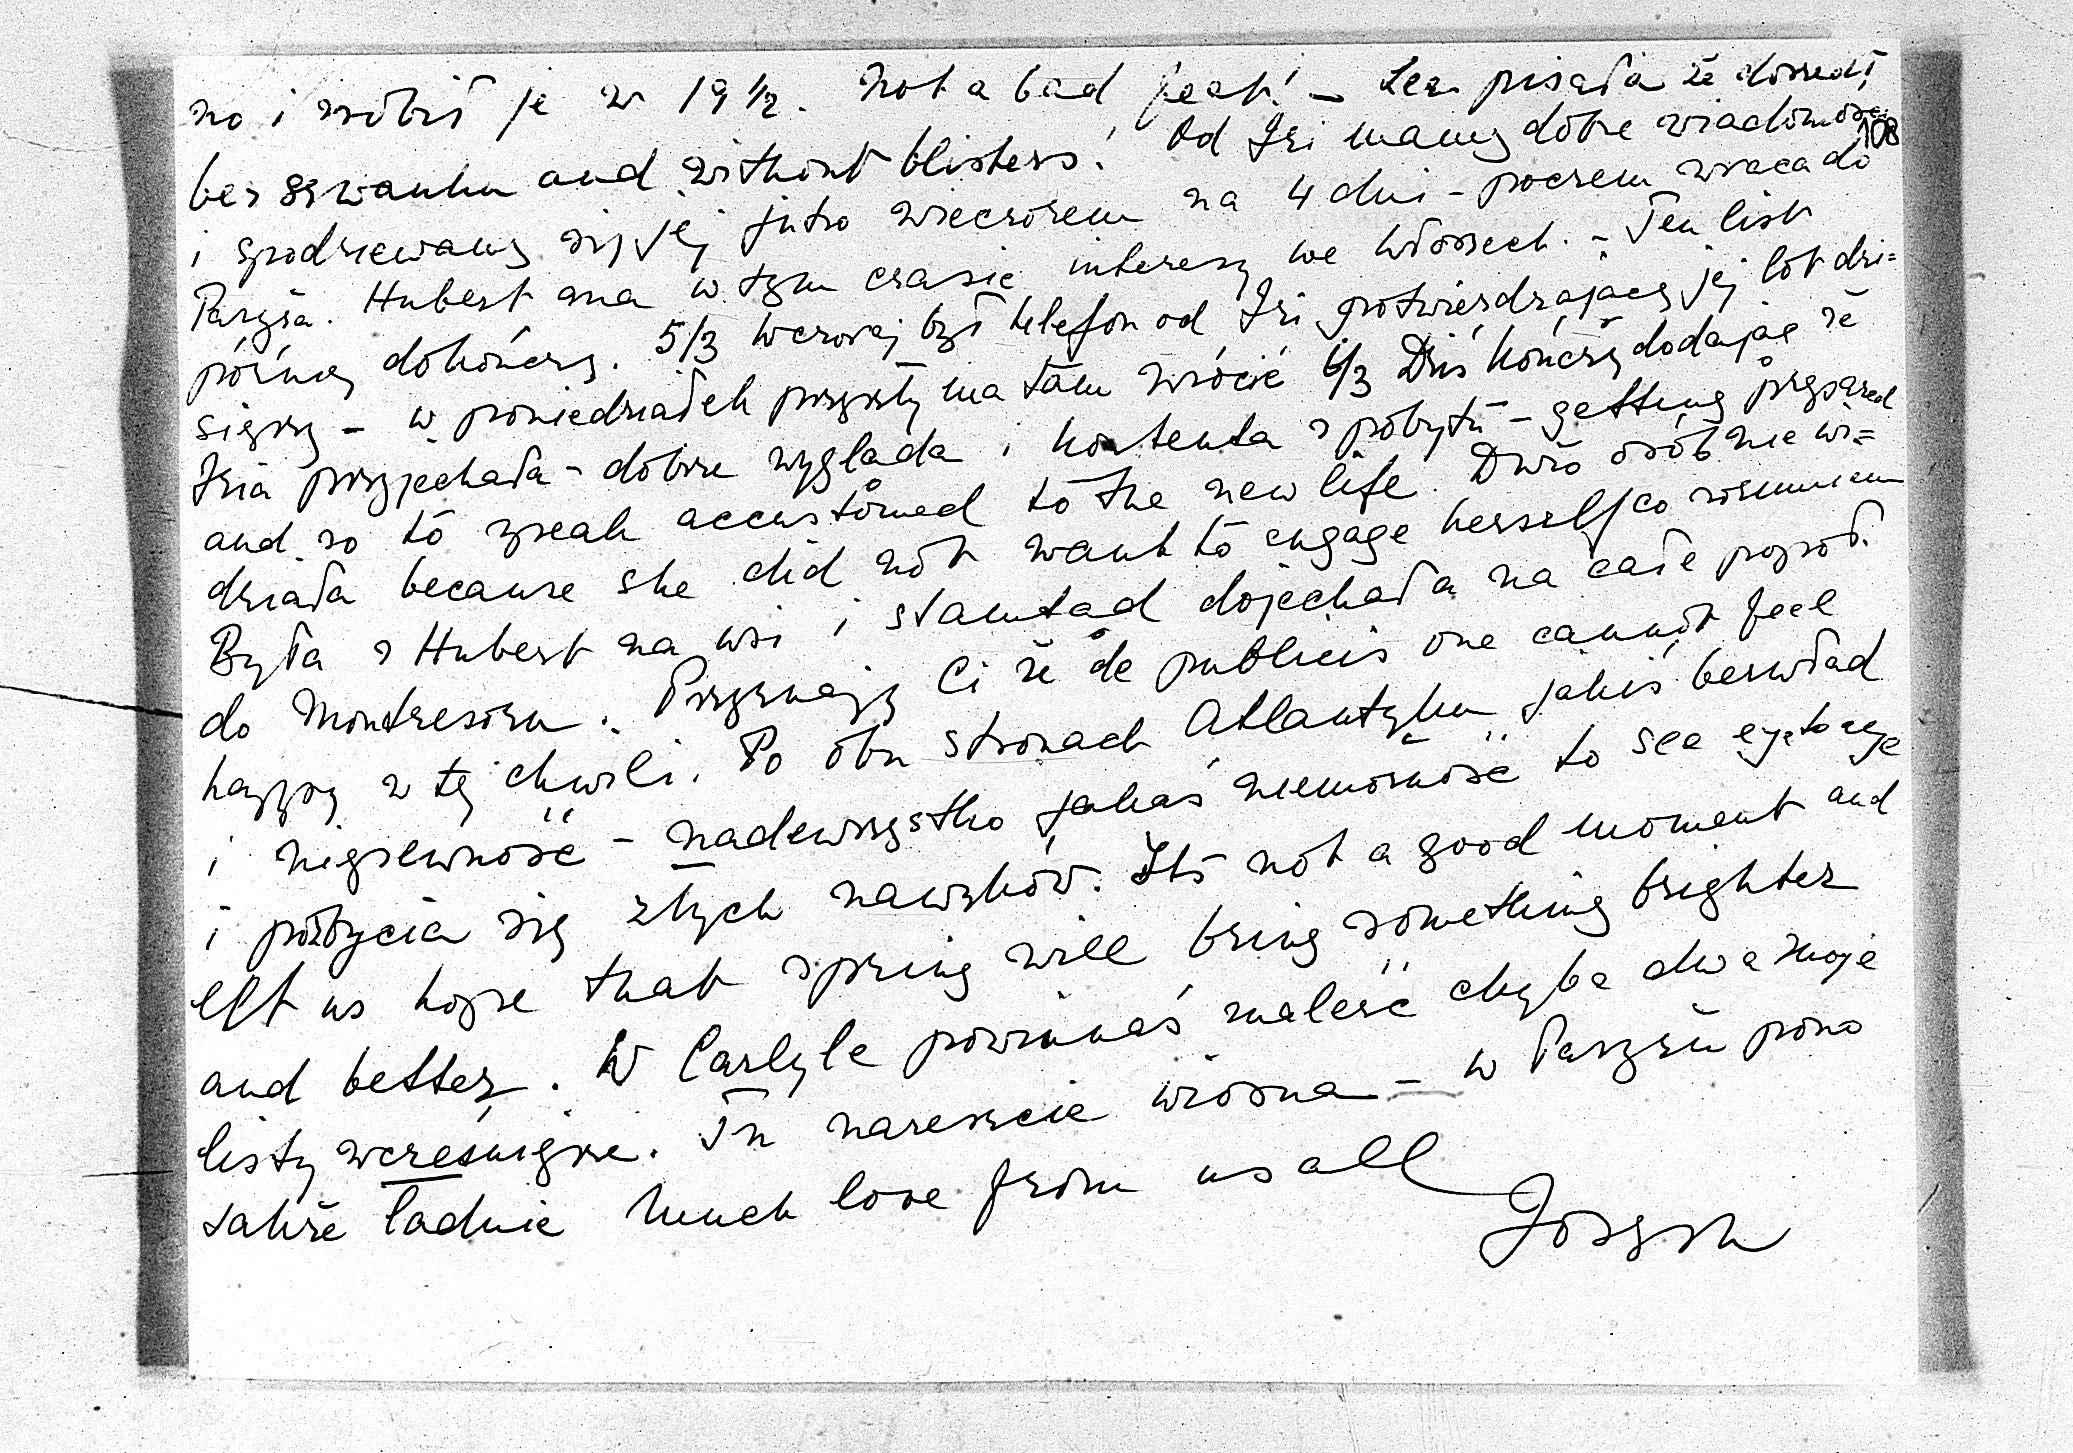 no i zrobił je w 19 1/2. Not a bad feat! – Lea pisała że doszedł
108
bez szwanku and without blisters! Od Izi mamy dobre wiadomości
i spodziewamy się jej jutro wieczorem na 4 dni – poczem wraca do
Paryża. Hubert ma w tym czasie interesy we Włoszech. – Ten list
później dokończę. 5/3 Wczoraj był telefon od Izi potwierdzający jej lot dzi=
siejszy – w poniedziałek przyszły ma tam wrócić 6/3 Dziś kończę dodając że
Izia przyjechała – dobrze wygląda i kontenta z pobytu – getting prepared
and so to speak accustomed to the new life. Dużo osób nie wi=
działa because she did not want to engage herself co rozumiem
Była z Hubert na wsi i stamtąd dojechała na całe popoł.
do Montresoru. Przyznaję Ci że de publicis one cannot feel
happy w tej chwili. Po obu stronach Atlantyku jakiś bezwład
i niepewność – nadewszystko jakaś niemożność to see eye to eye
i pozbycia się złych nawyków. Its not a good moment and
let us hope that spring will bring something brighter
and better. W Carlyle powinnaś znaleść chyba dwa moje
listy wcześniejsze. Tu nareszcie wiosna – w Paryżu pono
także ładnie Much love from us all